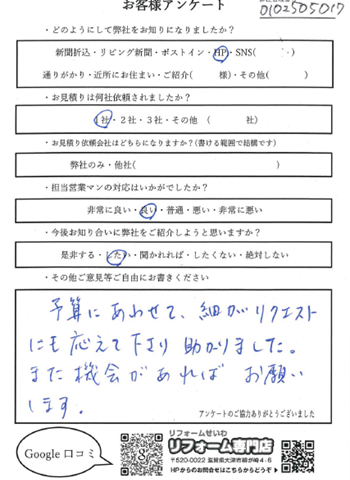 お客様アンケート
0102505017
・どのようにして弊社をお知りになりましたか?
新聞折込・リビング新聞・ポストイン・HP・SNS( )
通りがかり・近所にお住まい・ご紹介( 様)・その他( )
・お見積りは何社依頼されましたか?
1社・2社・3社・その他 ( 社)
・お見積り依頼会社はどちらになりますか?(書ける範囲で結構です)
弊社のみ・他社( )
・担当営業マンの対応はいかがでしたか?
非常に良い・良い・普通・悪い・非常に悪い
・今後お知り合いに弊社をご紹介しようと思いますか?
是非する・したい・聞かれれば・したくない・絶対しない
・その他ご意見等ご自由にお書きください
予算にあわせて、細かリクエスト
にも応えて下さり助かりました。
また機会があれば お願い
します。
アンケートのご協力ありがとうございました
Google 口コミ
リフォームせいわ
リフォーム専門店
〒520-0022 滋賀県大津市柳が崎4-6
HPからのお問合せはこちらからどうぞ